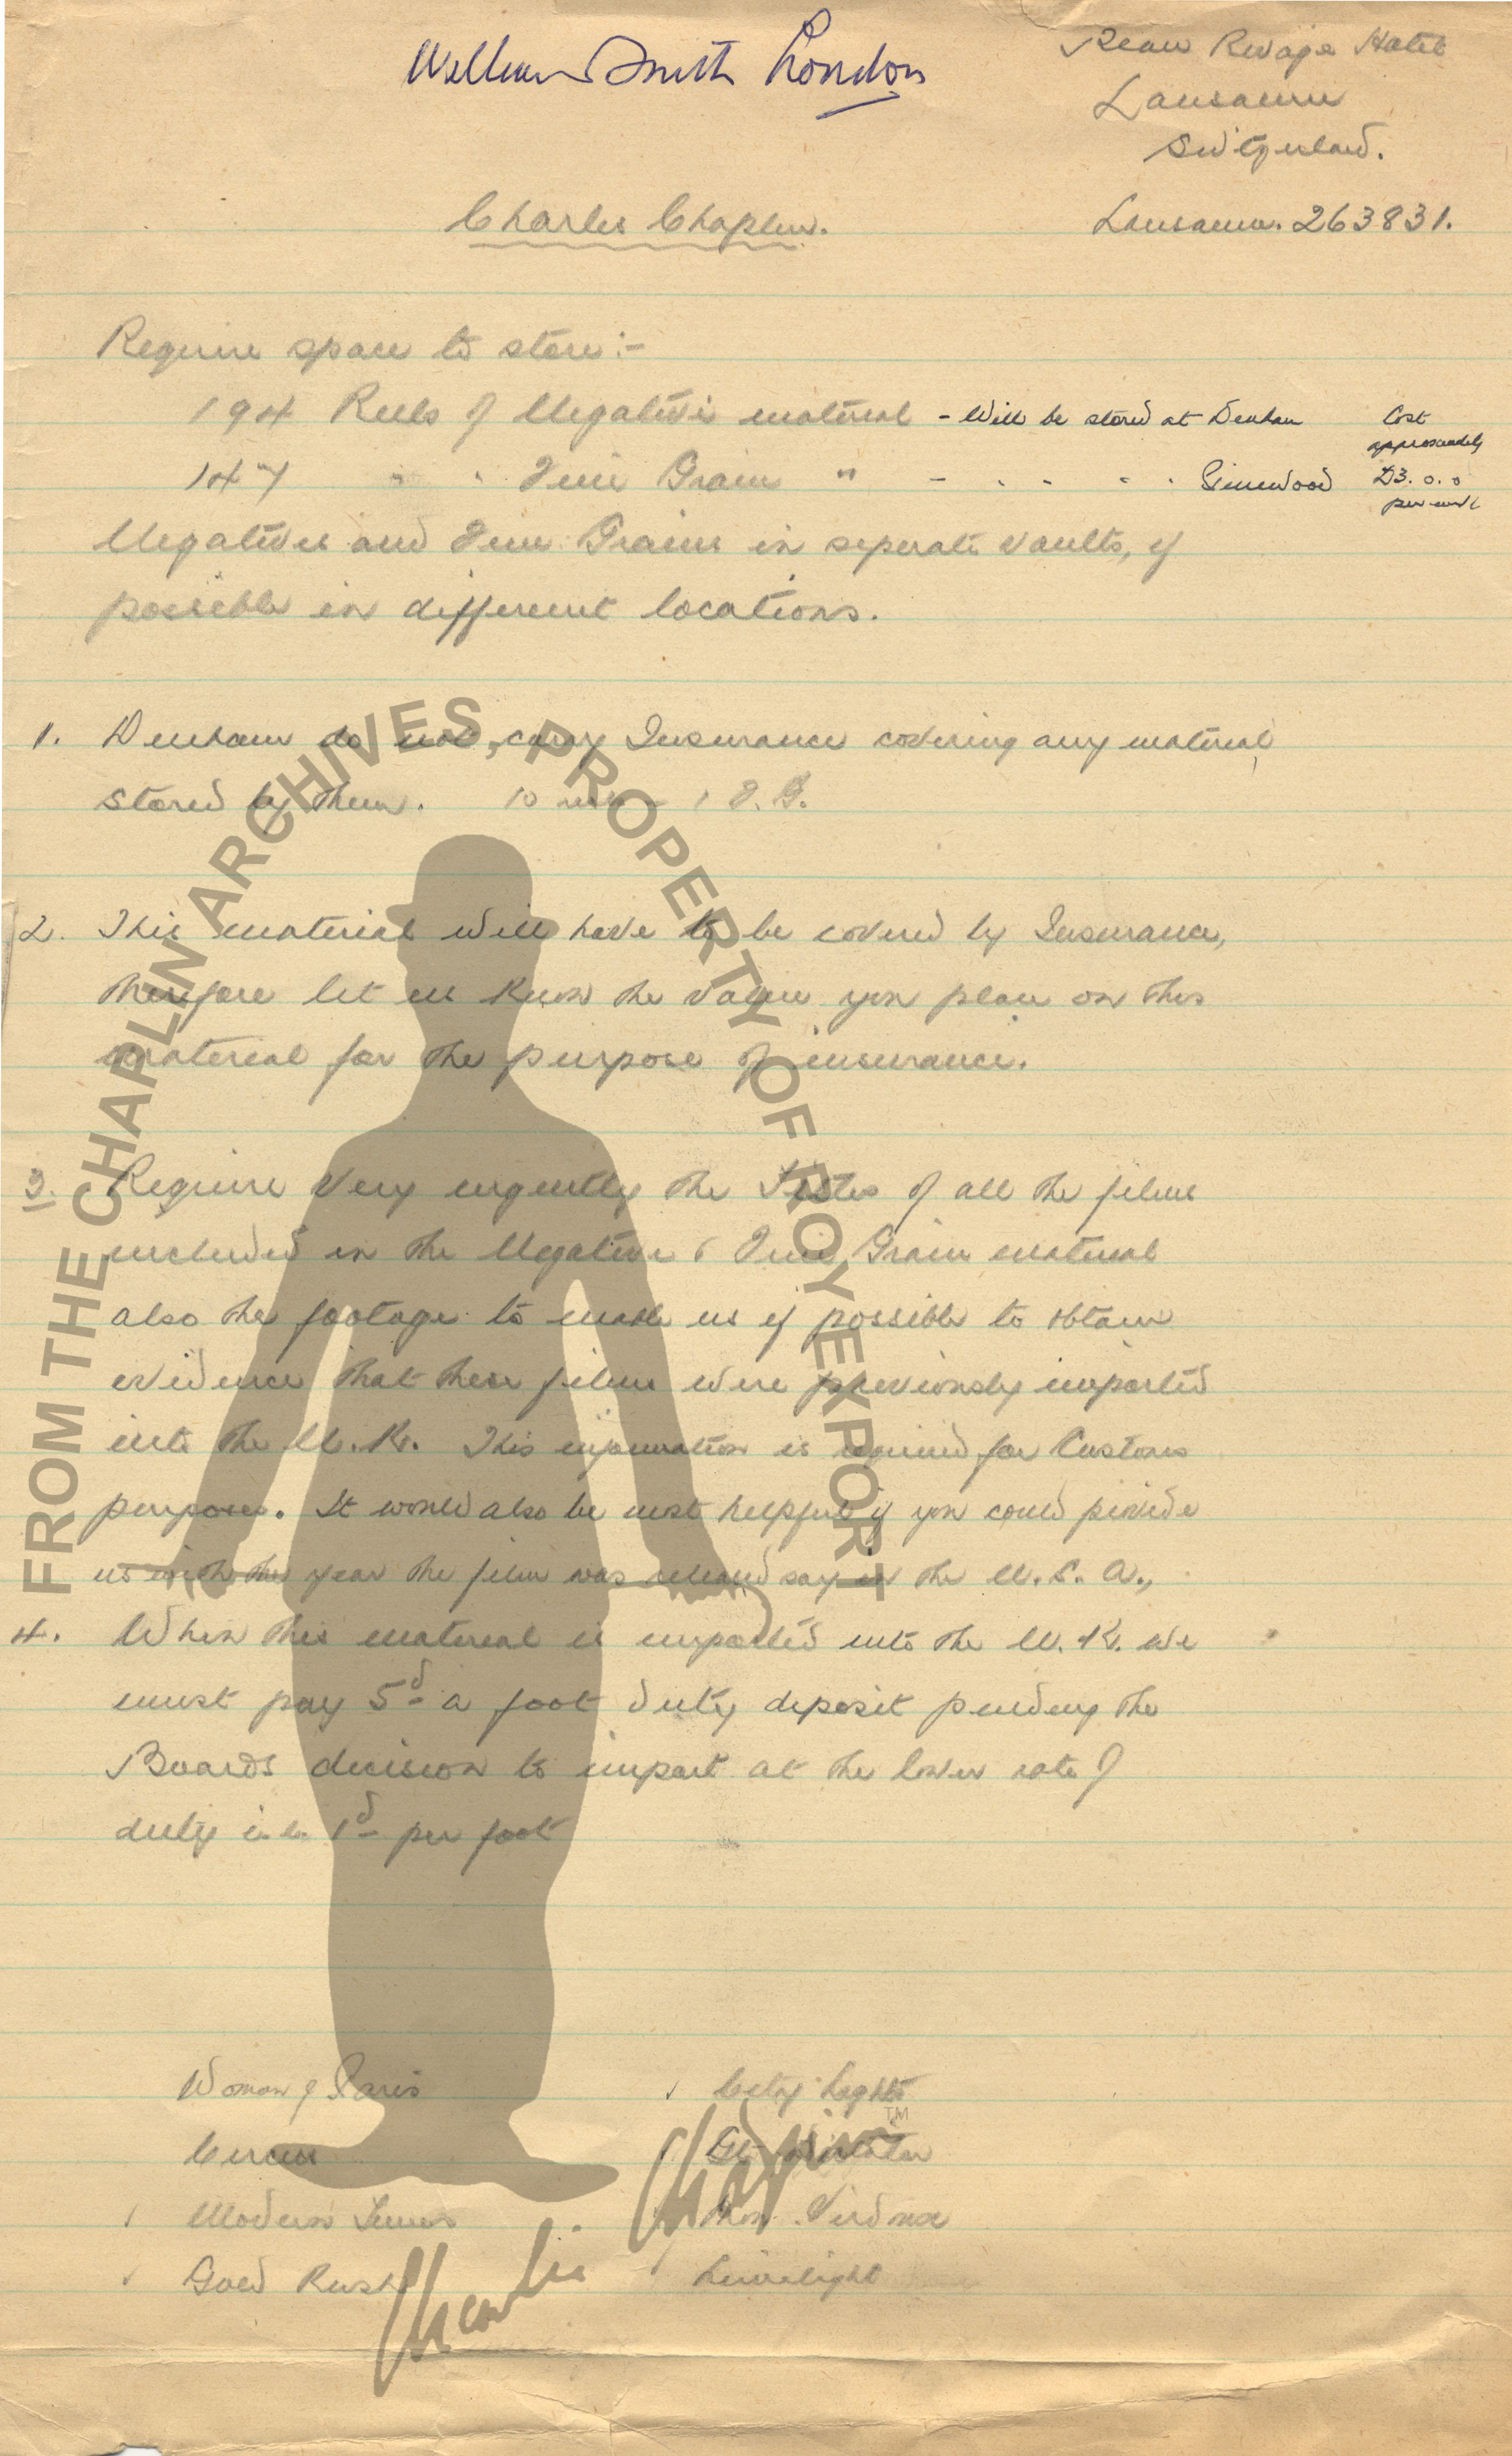 William Smith London
Beau Rivage Hotel
Lausanne
Switzerland.
Charles Chaplin.
Lausanne. 263831.
Require space to store:-
194 Reels of Negative material - Will be stored at Denham Cost approximately
147 " " Fine Grain " - " " " " Pinewood £3.0.0 per week
Negatives and Fine Grains in seperate vaults, if
possible in different locations.
1. Denham do not carry Insurance covering any material
stored by them. 10
2. This material will have to be covered by Insurance,
therefore let us know the value you place on this
material for the purpose of insurance.
3. Require very urgently the Titles of all the films
included in the Negative & Fine Grain material
also the footage to enable us if possible to obtain
evidence that these films were previously imported
into the U.K. This information is required for Customs
purposes. It would also be most helpful if you could provide
us with the year the film was released say in the U.S.A.,
4. When this material is imported into the U.K. we
must pay 5d a foot duty deposit pending the
Boards decision to import at the lower rate of
duty i.e. 1d per foot
Woman of Paris
City Lights
Circus
Gt. Dictator
Modern Times
Mon. Verdoux
Gold Rush
Limelight
FROM THE CHAPLIN ARCHIVES, PROPERTY OF ROY EXPORT
Charlie Chaplin™